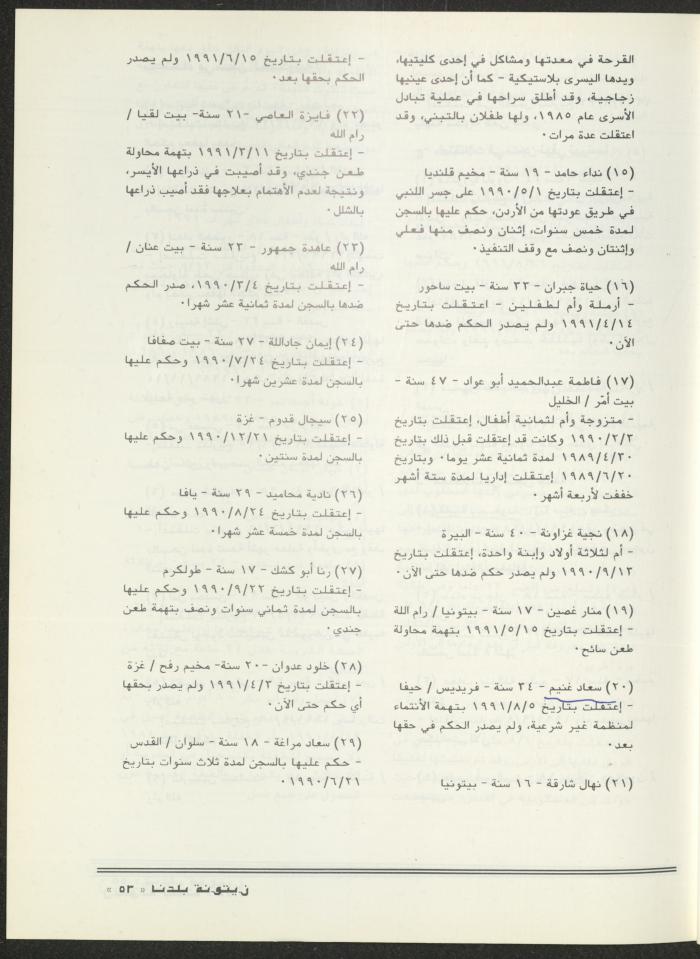 القرحة في معدتها ومشاكل في إحدى كليتيها،
ويدها اليسرى بلاستيكية - كما أن إحدى عينيها
زجاجية، وقد أطلق سراحها في عملية تبادل
الأسرى عام ١٩٨٥، ولها طفلان بالتبني، وقد
اعتقلت عدة مرات٠
(١٥) نداء حامد - ١٩ سنة - مخيم قلنديا
- إعتقلت بتاريخ ١٩٩٠/٥/١ على جسر اللنبي
في طريق عودتها من الأردن، حكم عليها بالسجن
لمدة خمس سنوات، إثنان ونصف منها فعلي
وإثنتان ونصف مع وقف التنفيذ٠
(١٦) حياة جبران - ٣٣ سنة - بيت ساحور
- أرملة وأم لطفلين - اعتقلت بتاريخ
١٩٩١/٤/١٤ ولم يصدر الحكم ضدها حتى
الآن٠
(١٧) فاطمة عبدالحميد أبو عواد - ٤٧ سنة -
بيت أمّر / الخليل
- متزوجة وأم لثمانية أطفال، إعتقلت بتاريخ
١٩٩٠/٢/٣ وكانت قد إعتقلت قبل ذلك بتاريخ
١٩٨٩/٤/٣٠ لمدة ثمانية عشر يوما٠ وبتاريخ
١٩٨٩/٦/٢٠ إعتقلت إداريا لمدة ستة أشهر
خففت لأربعة أشهر٠
(١٨) نجية غزاونة - ٤٠ سنة - البيرة
- أم لثلاثة أولاد وإبنة واحدة، إعتقلت بتاريخ
١٩٩٠/٩/١٣ ولم يصدر حكم ضدها حتى الآن٠
(١٩) منار غصين - ١٧ سنة - بيتونيا / رام الله
- إعتقلت بتاريخ ١٩٩١/٥/١٥ بتهمة محاولة
طعن سائح٠
(٢٠) سعاد غنيم - ٣٤ سنة - فريديس / حيفا
- إعتقلت بتاريخ ١٩٩١/٨/٥ بتهمة الأنتماء
لمنظمة غير شرعية، ولم يصدر الحكم في حقها
بعد٠
(٢١) نهال شارقة - ١٦ سنة - بيتونيا
- إعتقلت بتاريخ ١٩٩١/٦/١٥ ولم يصدر
الحكم بحقها بعد٠
(٢٢) فايزة العاصي - ٢١ سنة- بيت لقيا /
رام الله
- إعتقلت بتاريخ ١٩٩١/٣/١١ بتهمة محاولة
طعن جندي، وقد أصيبت في ذراعها الأيسر،
ونتيجة لعدم الأهتمام بعلاجها فقد أصيب ذراعها
بالشلل٠
(٢٣) عاهدة جمهور - ٢٣ سنة - بيت عنان /
رام الله
- إعتقلت بتاريخ ١٩٩٠/٣/٤، صدر الحكم
ضدها بالسجن لمدة ثمانية عشر شهرا٠
(٢٤) إيمان جادالله - ٢٧ سنة - بيت صفافا
- إعتقلت بتاريخ ١٩٩٠/٧/٢٤ وحكم عليها
بالسجن لمدة عشرين شهرا٠
(٢٥) سيجال قدوم - غزة
- إعتقلت بتاريخ ١٩٩٠/١٢/٢١ وحكم عليها
بالسجن لمدة سنتين٠
(٢٦) نادية محاميد - ٢٩ سنة - يافا
- إعتقلت بتاريخ ١٩٩٠/٨/٢٤ وحكم عليها
بالسجن لمدة خمسة عشر شهرا٠
(٢٧) رنا أبو كشك - ١٧ سنة - طولكرم
- إعتقلت بتاريخ ١٩٩٠/٩/٢٢ وحكم عليها
بالسجن لمدة ثماني سنوات ونصف بتهمة طعن
جندي٠
(٢٨) خلود عدوان - ٢٠ سنة- مخيم رفح / غزة
- إعتقلت بتاريخ ١٩٩١/٤/٣ ولم يصدر بحقها
أي حكم حتى الآن٠
(٢٩) سعاد مراغة - ١٨ سنة - سلوان / القدس
- حكم عليها بالسجن لمدة ثلاث سنوات بتاريخ
١٩٩٠/٦/٢١٠
زيتونة بلدنا « ٥٣ »